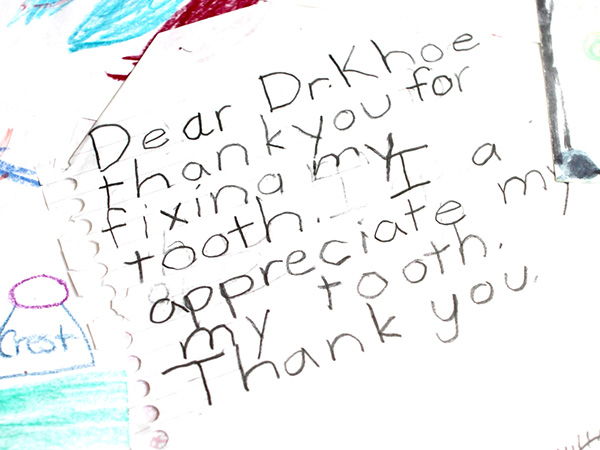 Dear Dr.Khoe
thankyou for
fixing my
tooth. I a
appreciate my
my tooth.
Thank you.
Crest